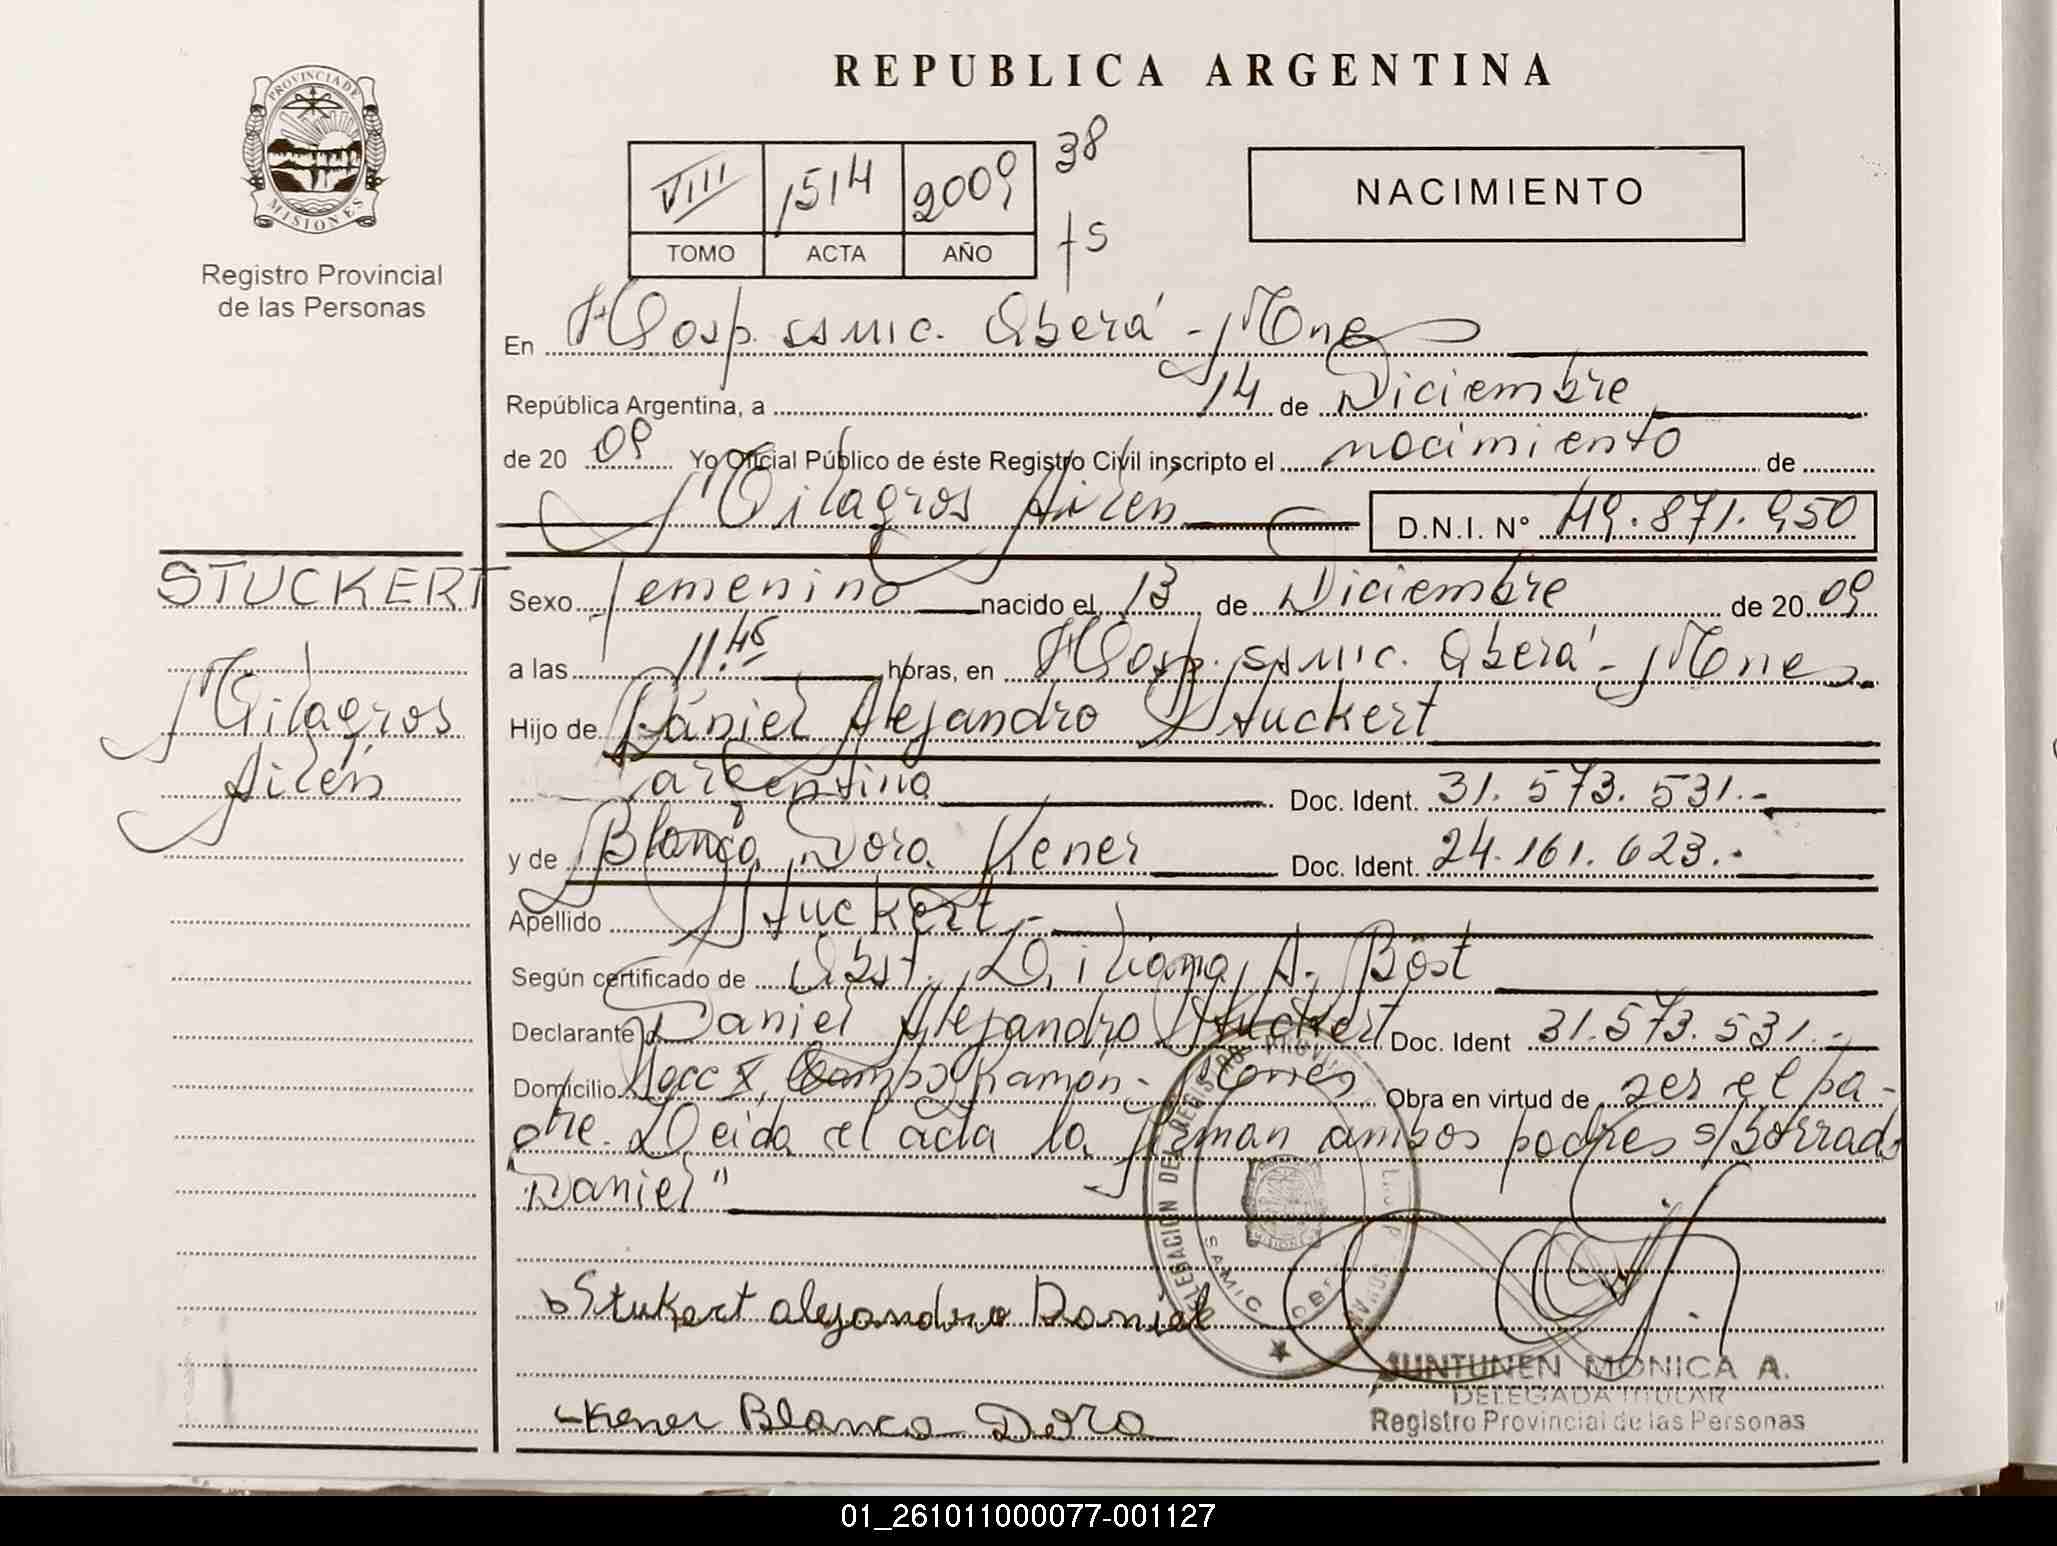 REPUBLICA ARGENTINA
PROVINCIA DE
MISIONES
Registro Provincial
de las Personas
VIII 1514 2009 38
TOMO ACTA AÑO fs
NACIMIENTO
En Hosp. SAMIC. Oberá - Mnes
República Argentina, a 14 de Diciembre
de 20 09 Yo Oficial Público de éste Registro Civil inscripto el nacimiento de
Milagros Ailén D.N.I. Nº 49.871.950
STUCKERT
Milagros
Ailén
Sexo femenino nacido el 13 de Diciembre de 20 09
a las 11.45 horas, en Hosp. SAMIC. Oberá - Mnes.
Hijo de Daniel Alejandro Stuckert
argentino Doc. Ident. 31.573.531.-
y de Blanca Dora Kener Doc. Ident. 24.161.623.-
Apellido Stuckert.-
Según certificado de Obst. Liliana A. Bost
Declarante Daniel Alejandro Stuckert Doc. Ident 31.573.531.-
Domicilio Secc X, Campo Ramón - Mnes Obra en virtud de ser el pa-
dre. Leída el acta la firman ambos padres s/Borrado
"Daniel"
DELEGACIÓN DEL REGISTRO PROVINCIAL
SAMIC
MISIONES
Stukert alejandro Daniel
Kener Blanca Dora
JUNTUNEN MONICA A.
DELEGADA TITULAR
Registro Provincial de las Personas
01_261011000077-001127